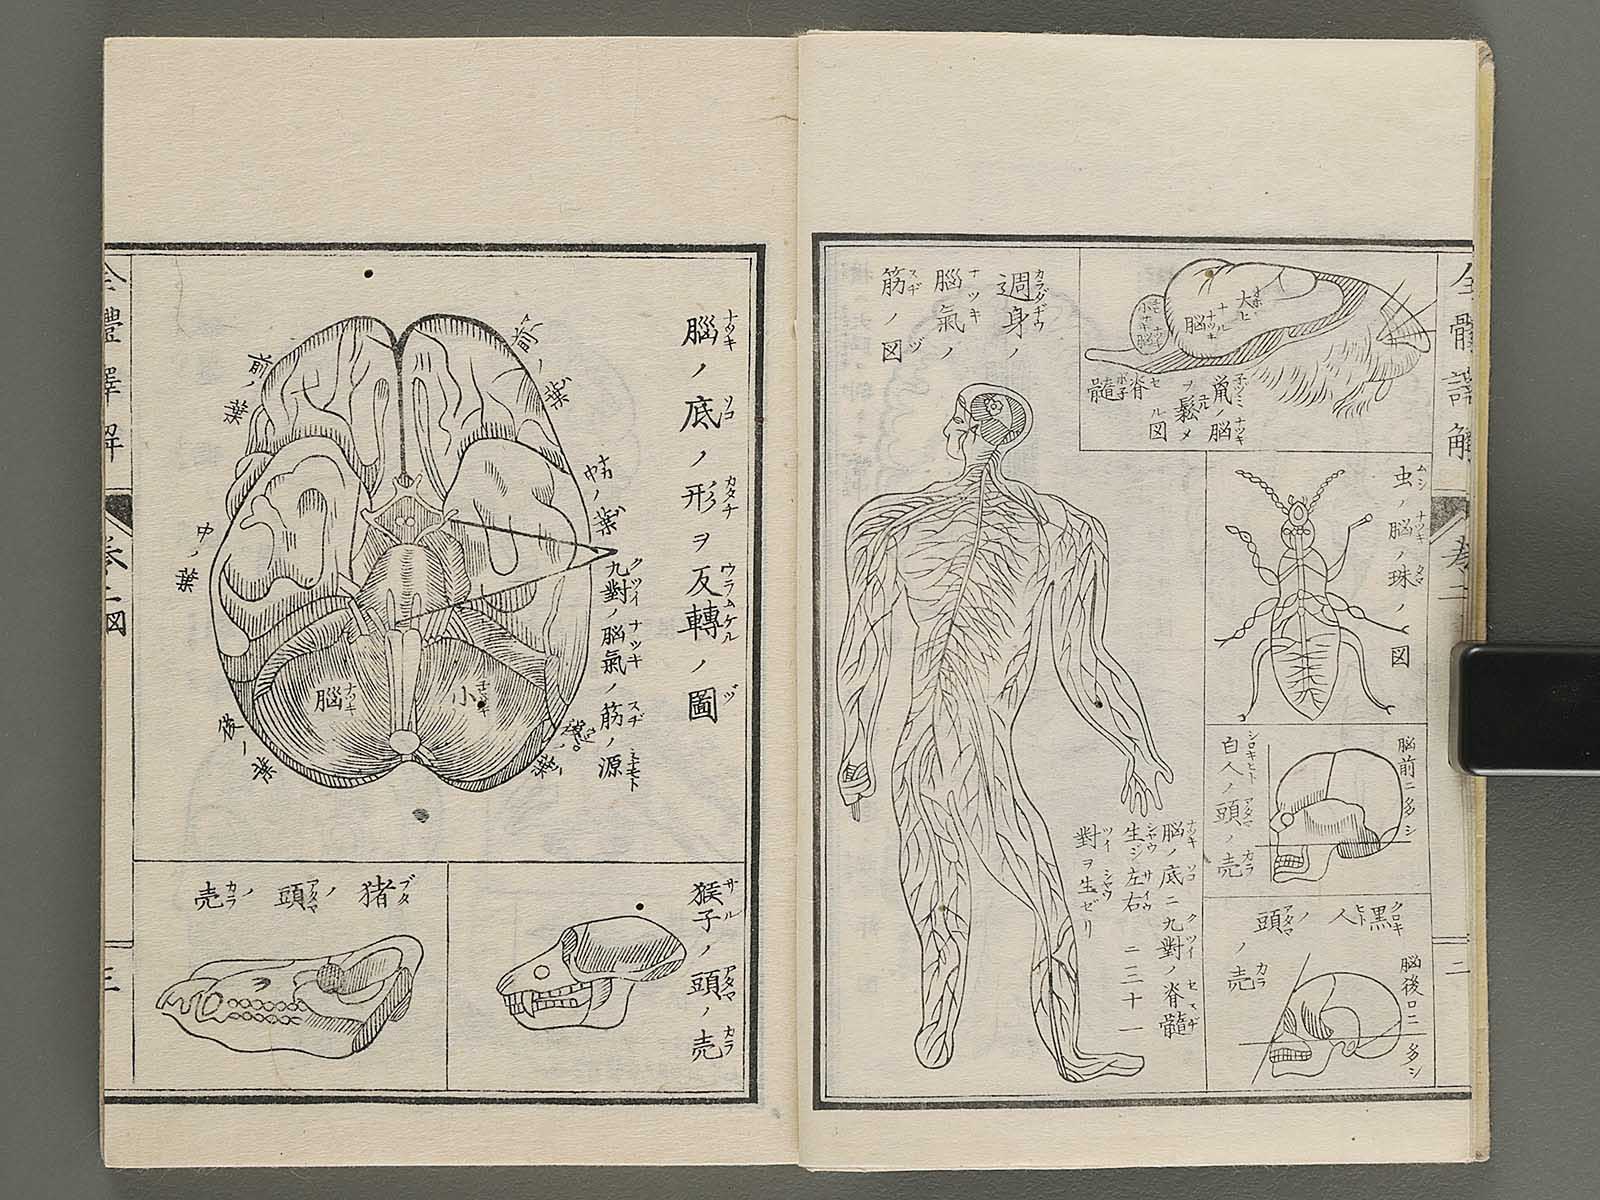 全體譯解
卷二
二
大ナル脳
小サキ脳
脊髓
鼠ノ脳
ヲ鬆メ
ル図
週身ノ
脳氣ノ
筋ノ図
虫ノ脳ノ珠ノ図
脳前ニ多シ
白人ノ頭ノ壳
脳後ロニ多シ
黒人ノ頭ノ壳
脳ノ底ニ九對ノ脊髓
生ジ左右ニ三十一
對ヲ生ゼリ
脳ノ底ノ形ヲ反轉ノ圖
前ノ葉
前ノ葉
中ノ葉
中ノ葉
九對ノ脳氣ノ筋ノ源
小脳
後ノ葉
後ノ葉
猴子ノ頭ノ壳
猪ノ頭ノ壳
全體譯解
卷二図
三